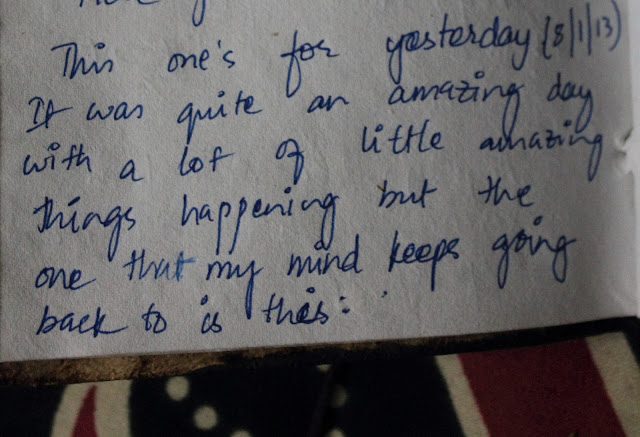 This one's for yesterday (8/1/13)
It was quite an amazing day
with a lot of little amazing
things happening but the
one that my mind keeps going
back to is this: